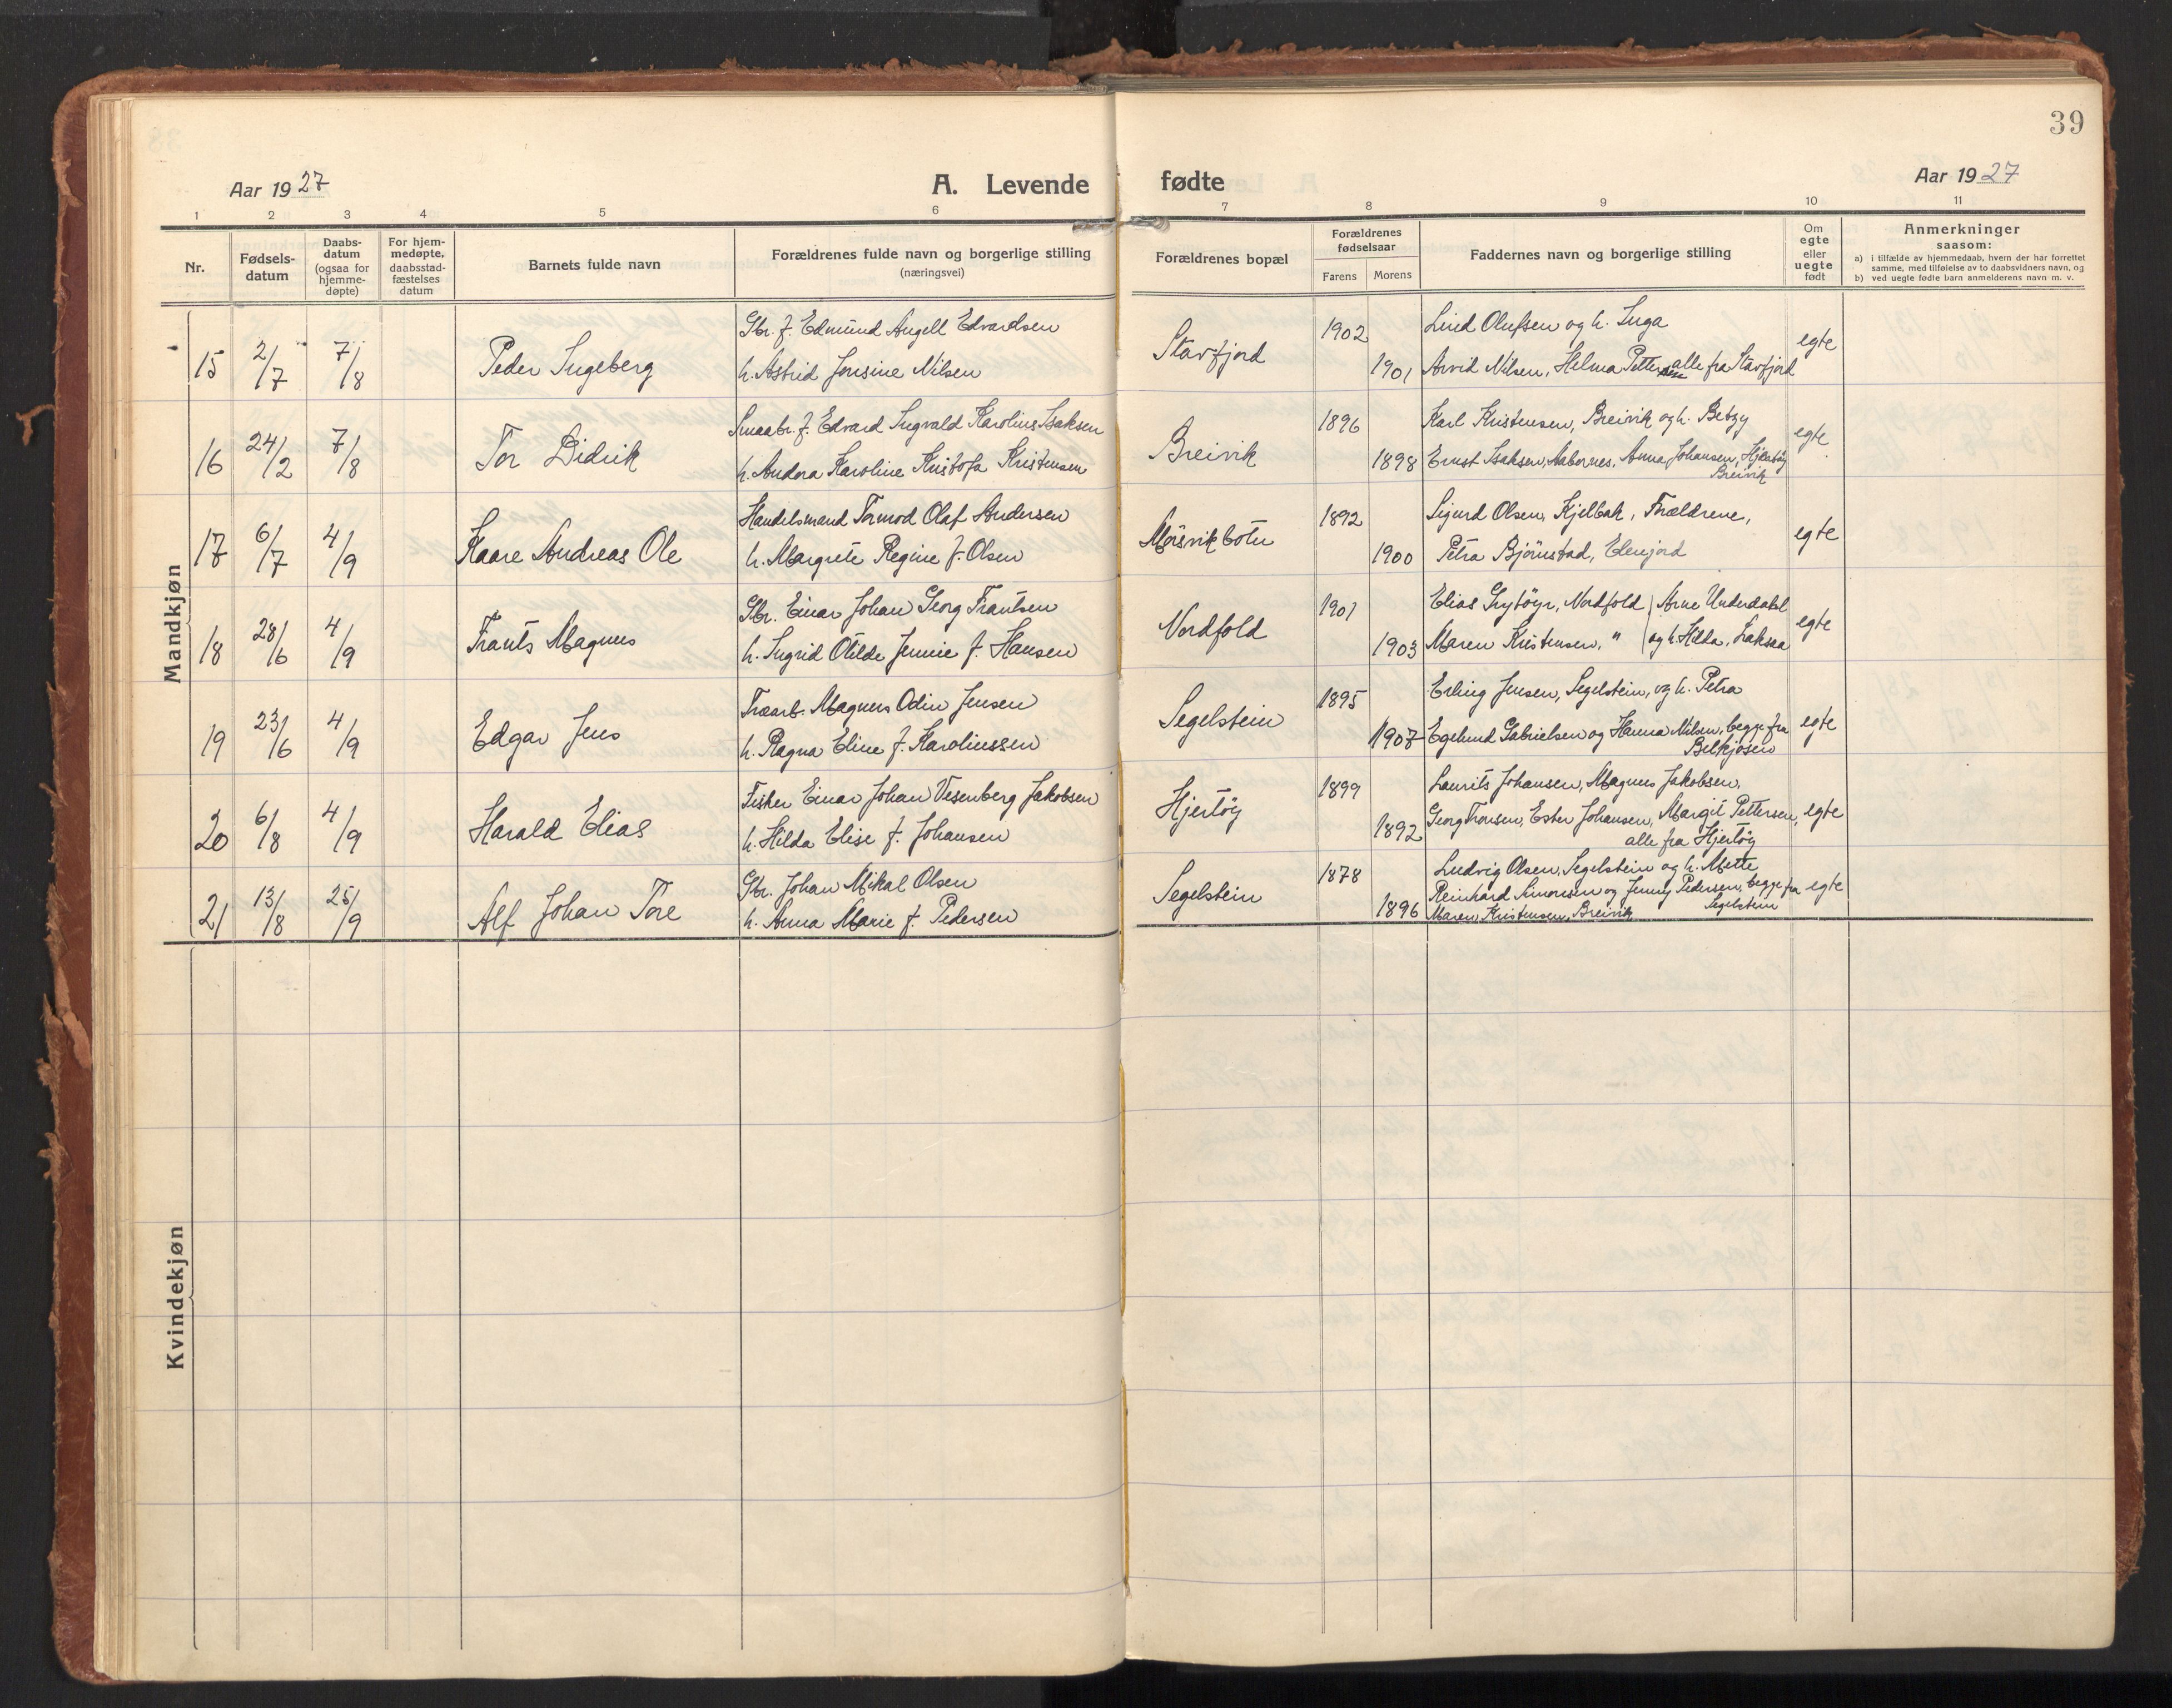 39
Aar 1927
A. Levende fødte
Aar 1927
1 2 3 4 5 6 7 8 9 10 11
Nr.
Fødsels-
datum
Daabs-
datum
(ogsaa for
hjemme-
døpte)
For hjem-
medøpte,
daabsstad-
fæstelses
datum
Barnets fulde navn
Forældrenes fulde navn og borgerlige stilling
(næringsvei)
Forældrenes bopæl
Forældrenes
fødselsaar
Farens Morens
Faddernes navn og borgerlige stilling
Om
egte
eller
uegte
født
Anmerkninger
saasom:
a) i tilfælde av hjemmedaab, hvem der har forrettet
samme, med tilføielse av to daabsvidners navn, og
b) ved uegte fødte barn anmelderens navn m. v.
Mandkjøn
15 2/7 7/8 Peder Ingeberg
Gbr. f. Edmund Angell Edvardsen
h. Astrid Jensine Nilsen
Stavfjord 1902 1901
Lind Olufsen og h. Inga
Arvid Nilsen, Helma Pettersen alle fra Stavfjord
egte
16 24/2 7/8 Tor Didrik
Smaabr. f. Edvard Ingvald Karolius Isaksen
h. Andora Karoline Kristofa Kristensen
Breivik 1896 1898
Karl Kristensen, Breivik og h. Betzy
Ernst Isaksen, Aabornes, Anna Johansen, Hjertøy
Breivik
egte
17 6/7 4/9 Kaare Andreas Ole
Handelsmand Tormod Olaf Andersen
h. Margrete Regine f. Olsen
Mørsvikbotn 1892 1900
Sigurd Olsen, Kjelbak, Forældrene,
Petra Bjørnstad, Elvejord
egte
18 28/6 4/9 Frants Magnus
Gbr. Einar Johan Georg Frantsen
h. Ingrid Otilde Jennie f. Hansen
Nordfold 1901 1903
Elias Grytøyr, Nordfold / Arne Underdahl
Maren Kristensen, " / og h. Hilda, Laksaa
egte
19 23/6 4/9 Edgar Jens
Træarb. Magnus Odin Jensen
h. Ragna Eline f. Karoliussen
Segelstein 1895 1907
Erling Jensen, Segelstein, og h. Petra
Egelund Gabrielsen og Hanna Nilsen, begge fra
Belkjosen
egte
20 6/8 4/9 Harald Elias
Fisker Einar Johan Vesenberg Jakobsen
h. Hilda Elise f. Johansen
Hjertøy 1899 1892
Laurits Johansen, Magnus Jakobsen,
Georg Tronsen, Ester Johansen, Margit Pettersen,
alle fra Hjertøy
egte
21 13/8 25/9 Alf Johan Tore
Gbr. Johan Mikal Olsen
h. Anna Marie f. Pedersen
Segelstein 1878 1896
Ludvig Olsen, Segelstein og h. Mette
Reinhard Simonsen og Jenny Pedersen, begge fra
Segelstein
Maren Kristensen, Breivik
egte
Kvindekjøn